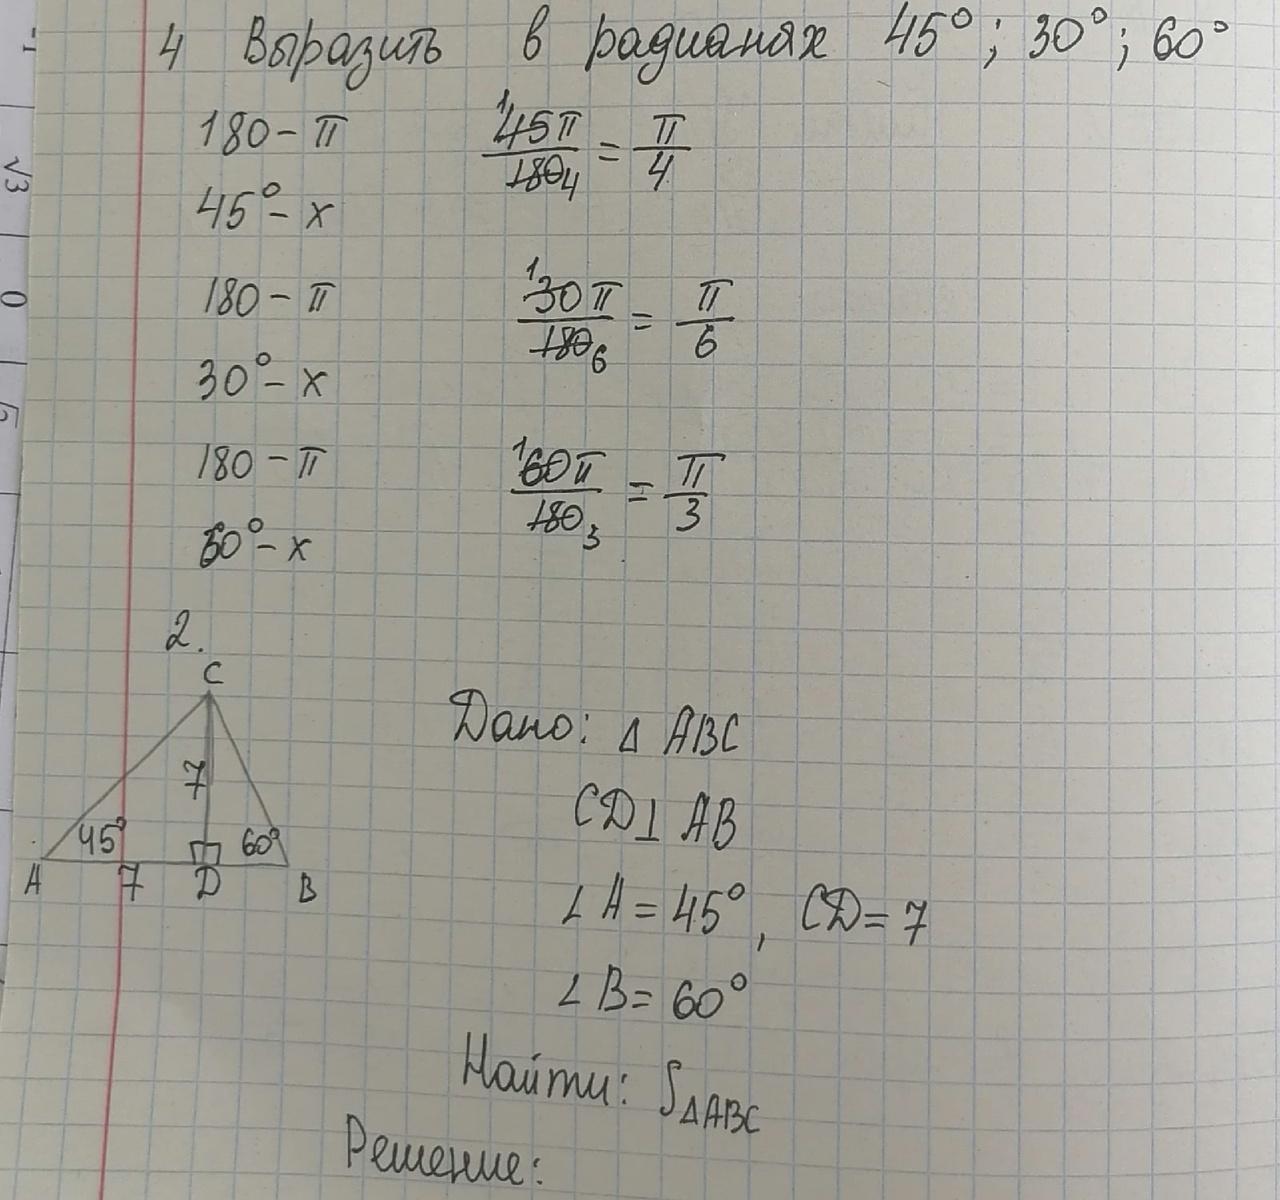 4 Выразить в радианах 45°; 30°; 60°
180 - π 45π/180 = π/4
1 4
45° - x
180 - π 30π/180 = π/6
1 6
30° - x
180 - π 60π/180 = π/3
1 3
60° - x
2.
C
7
45° 60°
A 7 D B
Дано: Δ ABC
CD⊥ AB
∠ A = 45°, CD = 7
∠ B = 60°
Найти: S ΔABC
Решение:
-1
√3
0